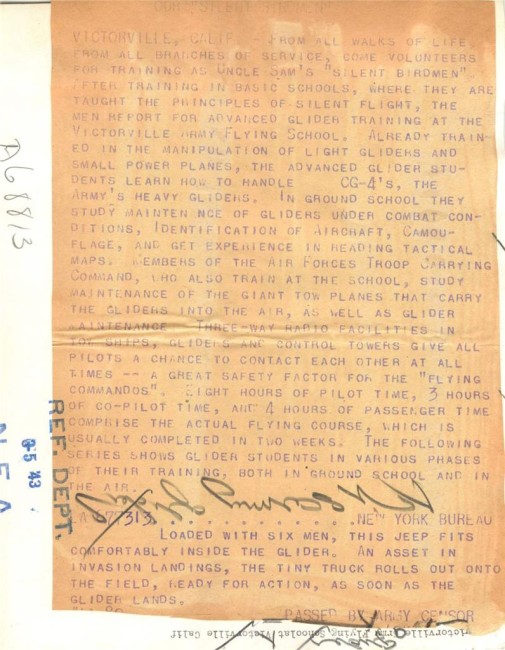 OUR "SILENT BIRDMEN"
VICTORVILLE, CALIF. - FROM ALL WALKS OF LIFE,
FROM ALL BRANCHES OF SERVICE, COME VOLUNTEERS
FOR TRAINING AS UNCLE SAM'S "SILENT BIRDMEN".
AFTER TRAINING IN BASIC SCHOOLS, WHERE THEY ARE
TAUGHT THE PRINCIPLES OF SILENT FLIGHT, THE
MEN REPORT FOR ADVANCED GLIDER TRAINING AT THE
VICTORVILLE ARMY FLYING SCHOOL. ALREADY TRAIN-
ED IN THE MANIPULATION OF LIGHT GLIDERS AND
SMALL POWER PLANES, THE ADVANCED GLIDER STU-
DENTS LEARN HOW TO HANDLE CG-4'S, THE
ARMY'S HEAVY GLIDERS. IN GROUND SCHOOL THEY
STUDY MAINTEN NCE OF GLIDERS UNDER COMBAT CON-
DITIONS, IDENTIFICATION OF AIRCRAFT, CAMOU-
FLAGE, AND GET EXPERIENCE IN READING TACTICAL
MAPS. MEMBERS OF THE AIR FORCES TROOP CARRYING
COMMAND, WHO ALSO TRAIN AT THE SCHOOL, STUDY
MAINTENANCE OF THE GIANT TOW PLANES THAT CARRY
THE GLIDERS INTO THE AIR, AS WELL AS GLIDER
MAINTENANCE THREE-WAY RADIO FACILITIES IN
TOW SHIPS, GLIDERS AND CONTROL TOWERS GIVE ALL
PILOTS A CHANCE TO CONTACT EACH OTHER AT ALL
TIMES -- A GREAT SAFETY FACTOR FOR THE "FLYING
COMMANDOS". EIGHT HOURS OF PILOT TIME, 3 HOURS
OF CO-PILOT TIME, AND 4 HOURS OF PASSENGER TIME
COMPRISE THE ACTUAL FLYING COURSE, WHICH IS
USUALLY COMPLETED IN TWO WEEKS. THE FOLLOWING
SERIES SHOWS GLIDER STUDENTS IN VARIOUS PHASES
OF THEIR TRAINING, BOTH IN GROUND SCHOOL AND IN
THE AIR.
677313 . . . . . . . . . . .NEW YORK BUREAU
LOADED WITH SIX MEN, THIS JEEP FITS
COMFORTABLY INSIDE THE GLIDER. AN ASSET IN
INVASION LANDINGS, THE TINY TRUCK ROLLS OUT ONTO
THE FIELD, READY FOR ACTION, AS SOON AS THE
GLIDER LANDS.
PASSED BY ARMY CENSOR
Victorville Army Flying School at Victorville Calif
REF. DEPT.
25 43
N E A